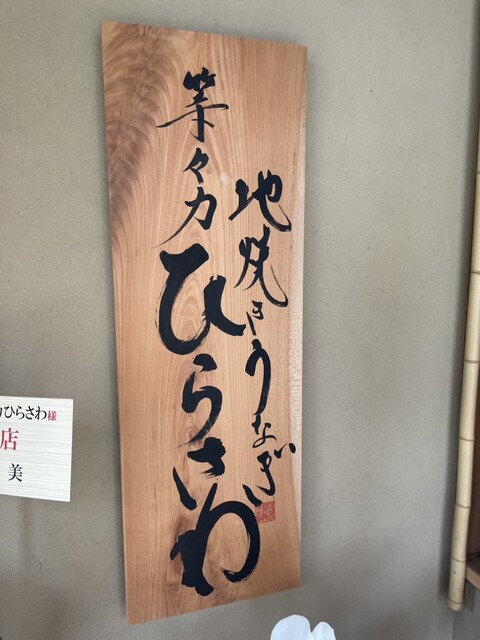 地焼きうなぎ
等々力
ひらさわ
力ひらさわ様
店
美